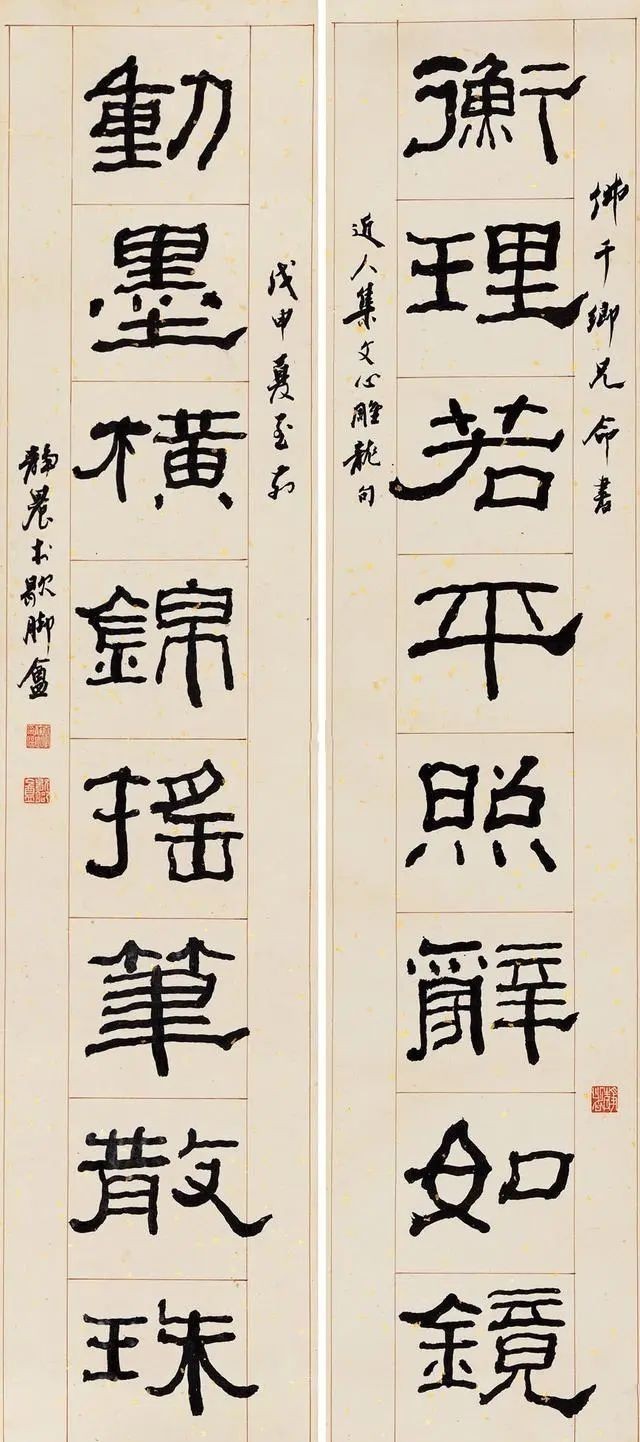 佛千鄉兄命書
衡理若平照辭如鏡
近人集文心雕龍句
戊申夏至前
動墨橫錦搖筆散珠
靜農於歇脚盦